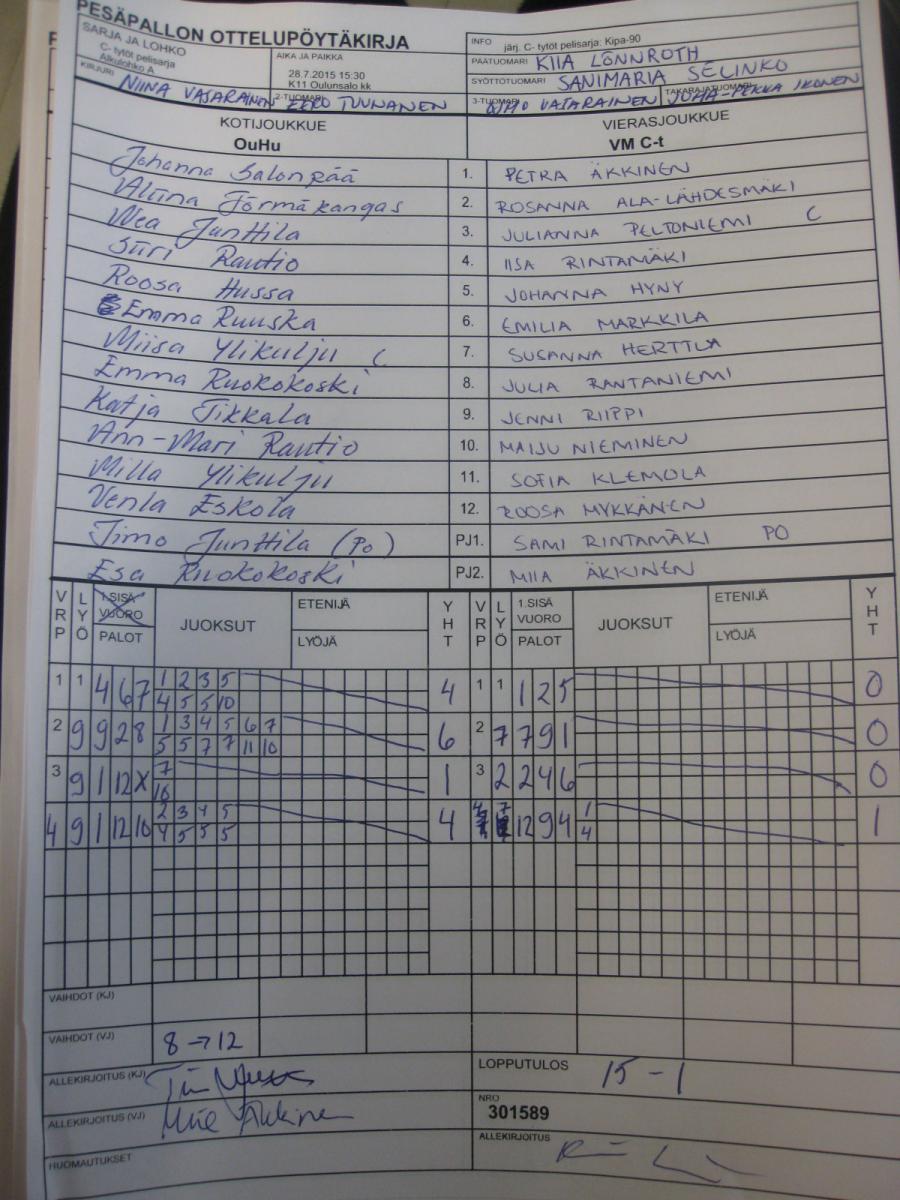 PESÄPALLON OTTELUPÖYTÄKIRJA
SARJA JA LOHKO
C- tytöt pelisarja
Alkulohko A
AIKA JA PAIKKA
28.7.2015 15:30
K11 Oulunsalo kk
INFO järj. C- tytöt pelisarja: Kipa-90
PÄÄTUOMARI KIIA LÖNNROTH
SYÖTTÖTUOMARI SANIMARIA SELINKO
KIRJURI NIINA VATARAINEN 2-TUOMARI EERO TUNNANEN 3-TUOMARI VATARAINEN TAKARAJATUOMARI JUHA-PEKKA IKONEN
KOTIJOUKKUE VIERASJOUKKUE
OuHu VM C-t
Johanna Salonpää 1. PETRA ÄKKINEN
Aliina Törmäkangas 2. ROSANNA ALA-LÄHDESMÄKI
Nea Junttila 3. JULIANNA PELTONIEMI C
Siiri Rautio 4. IISA RINTAMÄKI
Roosa Hussa 5. JOHANNA HYNY
Emma Ruuska 6. EMILIA MARKKILA
Miisa Ylikulju C 7. SUSANNA HERTTUA
Emma Ruokokoski 8. JULIA RANTANIEMI
Katja Tikkala 9. JENNI RIIPPI
Ann-Mari Rautio 10. MAIJU NIEMINEN
Milla Ylikulju 11. SOFIA KLEMOLA
Venla Eskola 12. ROOSA MYKKÄNEN
Timo Junttila (PO) PJ1. SAMI RINTAMÄKI PO
Esa Ruokokoski PJ2. MIIA ÄKKINEN
VRP LYÖ 1.SISÄ VUORO PALOT JUOKSUT ETENIJÄ LYÖJÄ YHT VRP LYÖ 1.SISÄ VUORO PALOT JUOKSUT ETENIJÄ LYÖJÄ YHT
1 1 4 6 7 1 2 3 5 4 1 1 1 2 5 0
4 5 5 10
2 9 9 2 8 1 3 4 5 6 7 6 2 7 7 9 1 0
5 5 7 7 11 10
3 9 1 12 X 7 1 3 2 2 4 6 0
16
4 9 1 12 10 2 3 4 5 4 4 7 12 9 4 1 1
4 5 5 5 4
VAIHDOT (KJ)
VAIHDOT (VJ) 8 → 12
ALLEKIRJOITUS (KJ)
LOPPUTULOS 15 - 1
ALLEKIRJOITUS (VJ) Miia Äkkinen
NRO
301589
HUOMAUTUKSET
ALLEKIRJOITUS